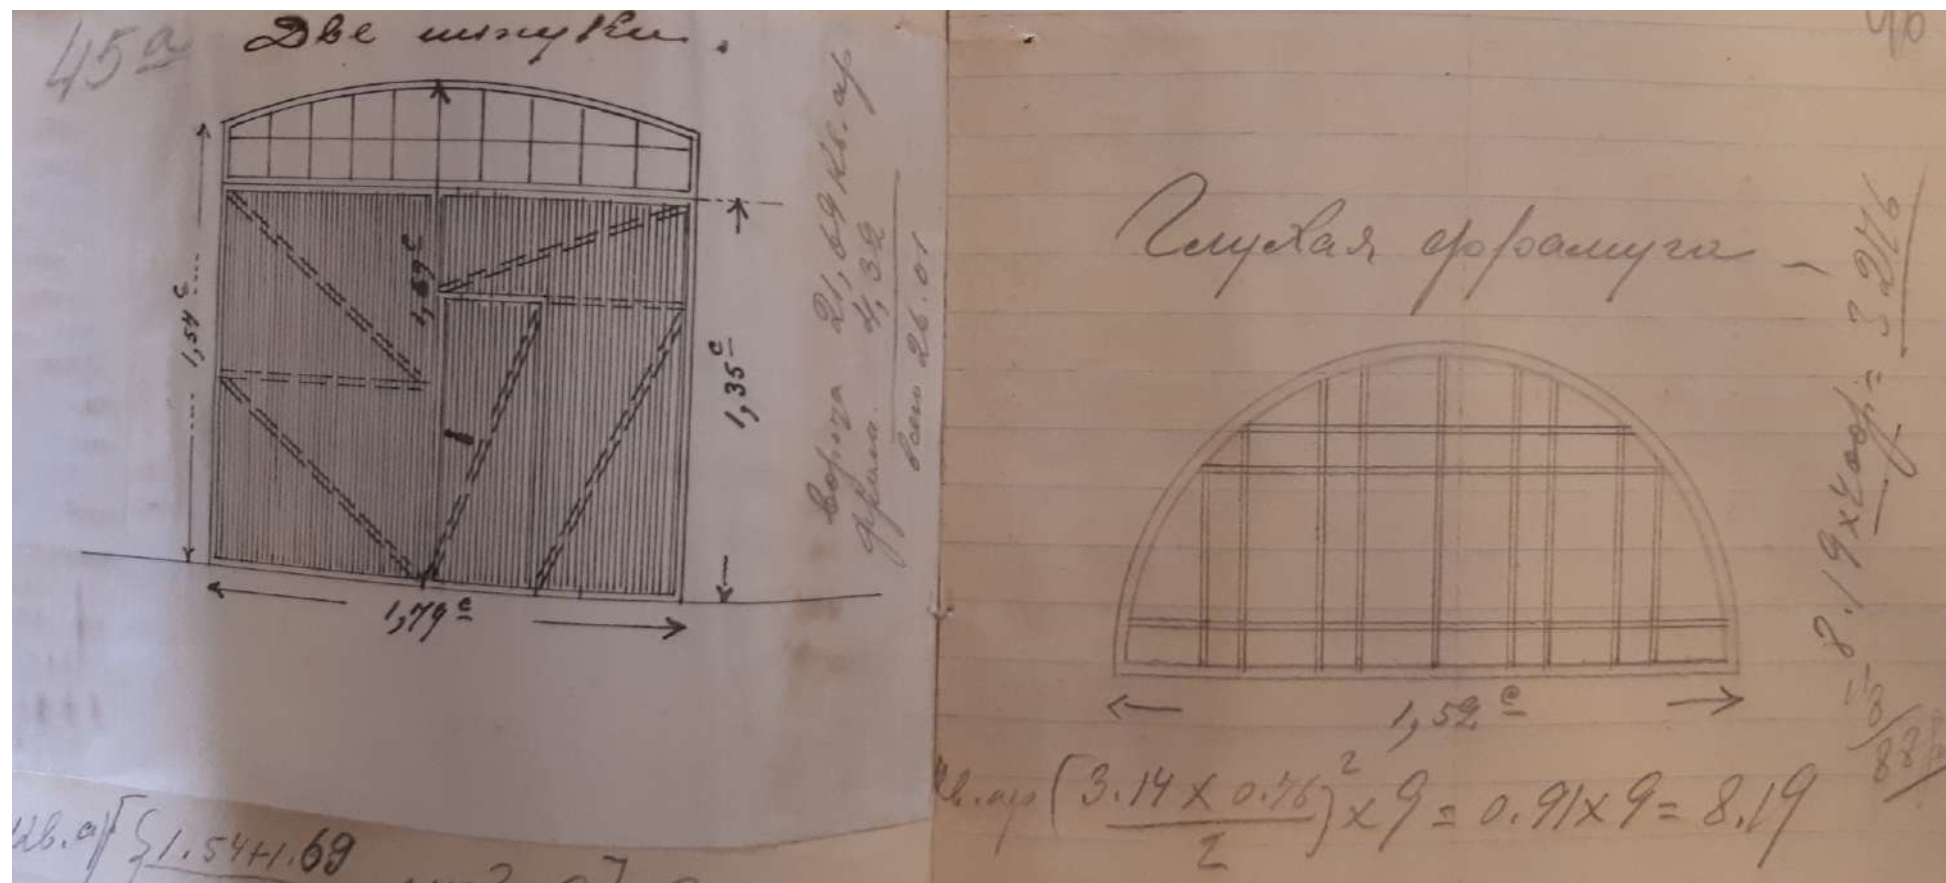 45а
Две штуки.
1,54 с
1,69 с
1,35 с
1,79 с
ворота 21,69 кв. ар
фрам. 4,32
всего 26.01
1.54+1.69
Глухая фрамуга
1,52 с
кв. ар (3.14 х 0.76 / 2)² х 9 = 0.91 х 9 = 8.19
8.19 х 40 = 3 276